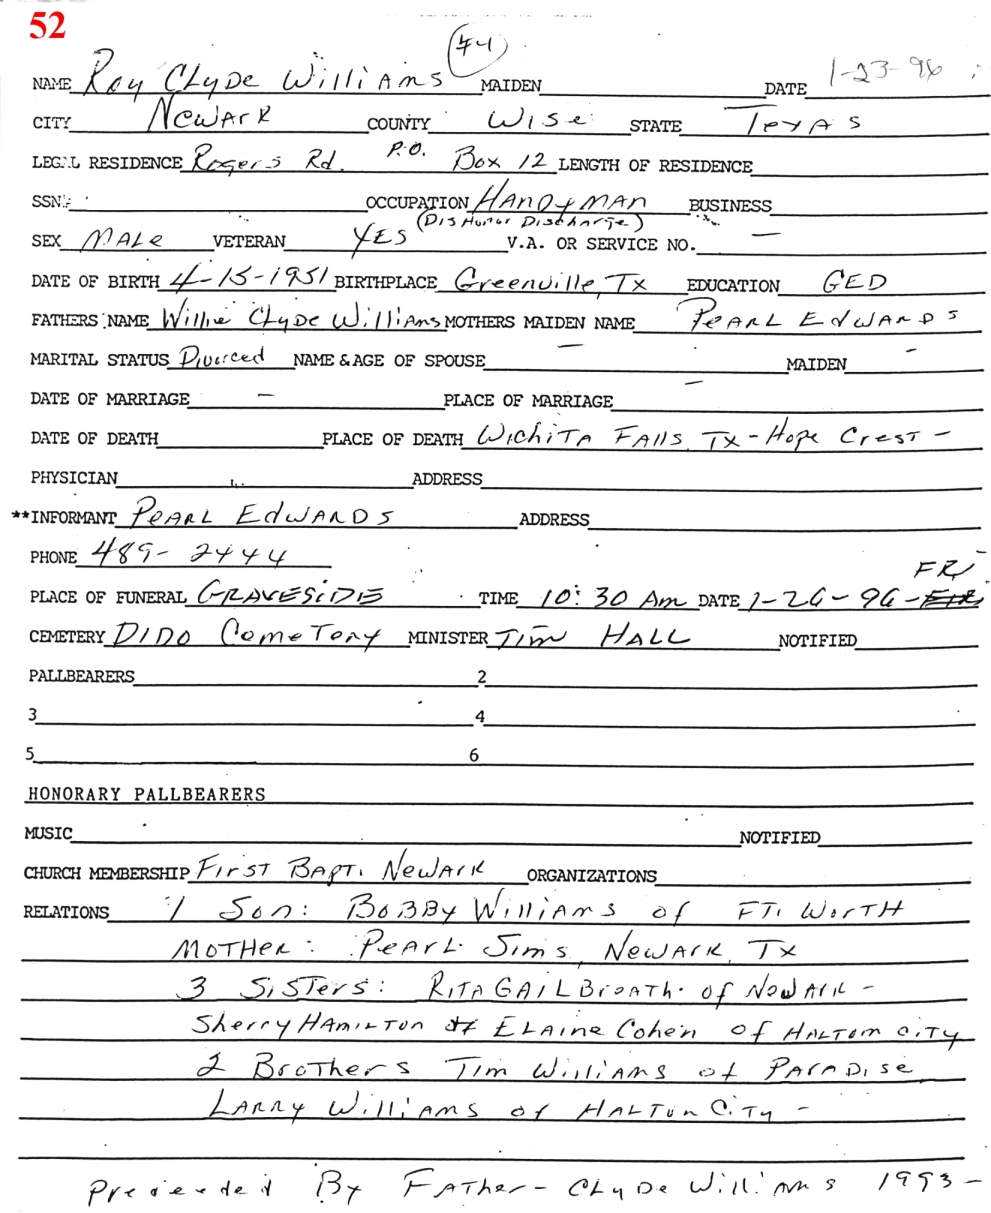 52
44
NAME Roy Clyde Williams MAIDEN DATE 1-23-96
CITY Newark COUNTY Wise STATE Texas
LEGAL RESIDENCE Rogers Rd. P.O. Box 12 LENGTH OF RESIDENCE
SSN OCCUPATION HANDYMAN BUSINESS
(DisHonor Discharge)
SEX MALe VETERAN YES V.A. OR SERVICE NO. —
DATE OF BIRTH 4-15-1951 BIRTHPLACE Greenville, Tx EDUCATION GED
FATHERS NAME Willie Clyde Williams MOTHERS MAIDEN NAME PEARL EdWARDS
MARITAL STATUS Divorced NAME & AGE OF SPOUSE — MAIDEN -
DATE OF MARRIAGE — PLACE OF MARRIAGE —
DATE OF DEATH PLACE OF DEATH Wichita Falls, Tx - Hope Crest -
PHYSICIAN ADDRESS
**INFORMANT PEARL EdWARDS ADDRESS
PHONE 489-2444
FRI
PLACE OF FUNERAL GRAVESIDE TIME 10:30 Am DATE 1-26-96-
CEMETERY DIDO CemeTery MINISTER Tim HALL NOTIFIED
PALLBEARERS 2
3 4
5 6
HONORARY PALLBEARERS
MUSIC NOTIFIED
CHURCH MEMBERSHIP First BAPT. Newark ORGANIZATIONS
RELATIONS 1 Son: BOBBy Williams of FT. WorTH
MOTHer: PEARL Sims, Newark, Tx
3 SiSTers: RITA GAILBreATH of NewArk -
Sherry HAMILTON & ELAine Cohen of HALTom CiTy
2 BroTHers Tim Williams of PArADise
LARRy Williams of HALTon CiTy -
Preceeded By FATHer - CLyDe Williams 1993 -